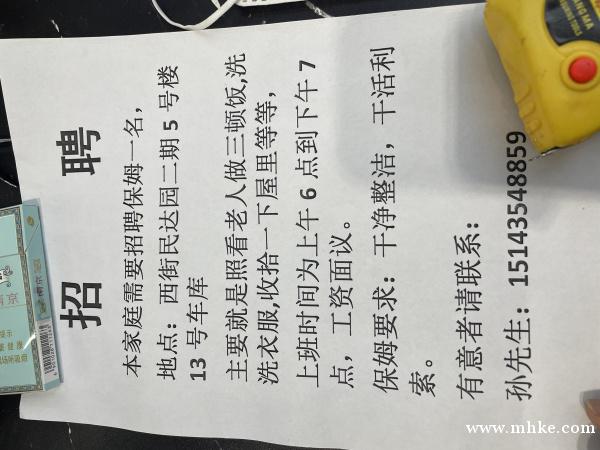 招 聘
本家庭需要招聘保姆一名，
地点：西街民达园二期 5 号楼
13 号车库
主要就是照看老人做三顿饭,洗
洗衣服,收拾一下屋里等等，
上班时间为上午 6 点到下午 7
点，工资面议。
保姆要求：干净整洁，干活利
索。
有意者请联系：
孙先生：15143548859
www.mhke.com